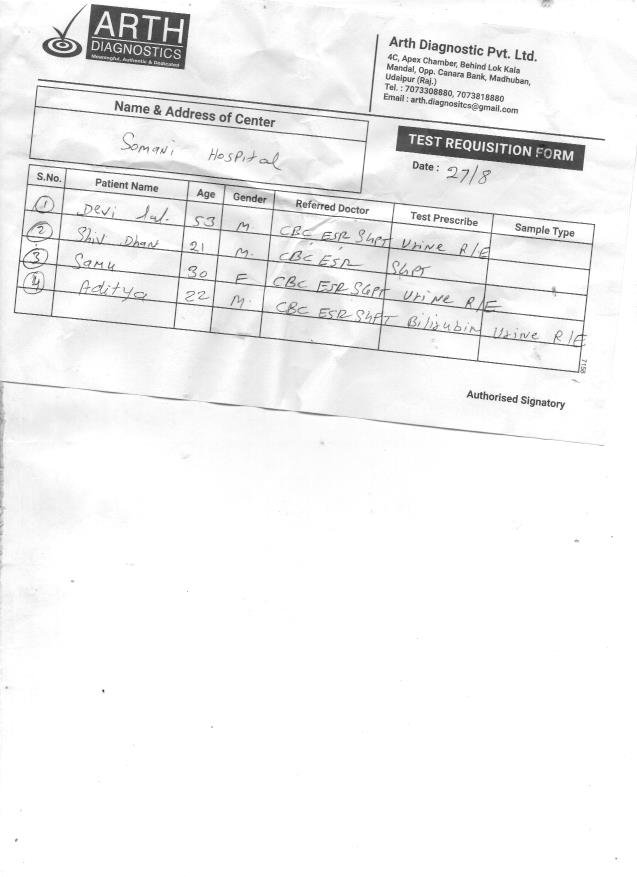 ARTH
DIAGNOSTICS
Meaningful, Authentic & Dedicated
Arth Diagnostic Pvt. Ltd.
4C, Apex Chamber, Behind Lok Kala
Mandal, Opp. Canara Bank, Madhuban,
Udaipur (Raj.)
Tel. : 7073308880, 7073818880
Email : arth.diagnositcs@gmail.com
Name & Address of Center
Somani Hospital
TEST REQUISITION FORM
Date : 27/8
S.No. Patient Name Age Gender Referred Doctor Test Prescribe Sample Type
1 Devi Lal. 53 M. CBC ESR SGPT Urine R/E
2 Shiv Dhan 21 M. CBC ESR SGPT
3 Samu 30 F CBC ESR SGPT Urine R/E
4 Aditya 22 M. CBC ESR SGPT Bilirubin Urine R/E
7158
Authorised Signatory